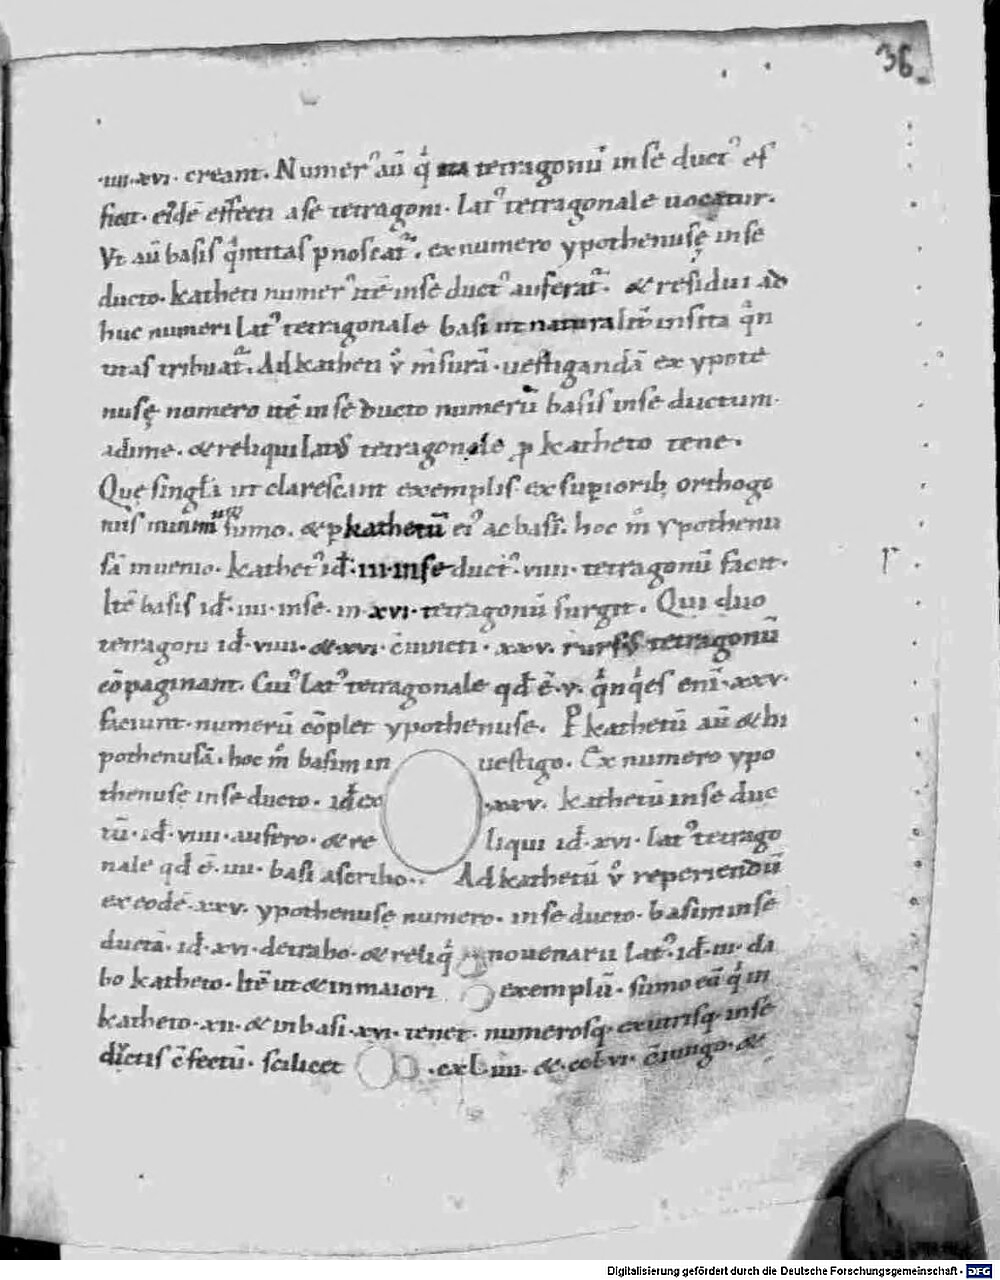 36
·IIII·XVI· creant. Numerꝰ aū q̇ tetragonū in se ductꝰ ef
ficit· eıdē effecti a se tetragoni· latꝰ tetragonale uocatur.
Vt aū basis q̇ntitas p̄noscat᷑. ex numero ypothenusę in se
ducto· katheti numerꝰ itē in se ductꝰ auferat᷑. & residui ad
huc numeri latꝰ tetragonale basi ut naturalit̄ insita q̇n
titas tribuat᷑. Ad katheti v̊ m̄surā· uestigandā ex ypote
nusę nomero itē in se ducto numerū basis in se ductum·
adime· & reliqui latꝰ tetragonale ꝓ katheto tene.
Quę singl̄a ut clarescant exemplis· ex supioribꝫ orthogo
niis sumo. & p kathetū eiꝰ ac basī· hoc m̊ ypothenu
sā inuenio· kathetꝰ id̄· III· in se ductꝰ· VIIII· tetragonū facit·
Itē basis id̄· IIII· in se· in· XVI· tetragonū surgit. Qui duo
tetragoni id̄· VIIII· & XVI· c̄iuncti· XXV· rursꝰ tetragonū
cōpaginant. Cuiꝰ latꝰ tetragonale qd̄ ē· V· q̇nq̇es eni· XXV·
faciunt· numerū cōplet ypothenuse. P kathetū aū & hi
pothenusā· hoc m̊ basim in uestigo. Ex numero ypo
thenuse in se ducto· id̄ ex XXV· kathetū in se duc
tū· id̄· VIIII· aufero· & re liqui id̄· XVI· latꝰ tetrago
nale qd̄ ē· IIII· basi ascribo. Ad kathetū v̊ reperiendū
ex eodē· XXV· ypothenusę numero· in se ducto· basim in se
ductā· id̄· XVI· detraho· & reliq̇ nouenarii latꝰ· id̄· III· da
bo katheto· Itē ut & in maiori exemplū· sumo eā q̇ in
katheto· XII· & in basi· XVI· tenet· numerosqꝫ ex utrisqꝫ in se
dictis c̄fectū· scilicet ·CXLIIII· & CCLVI· c̄iungo· &
r·
Digitalisierung gefördert durch die Deutsche Forschungsgemeinschaft - DFG